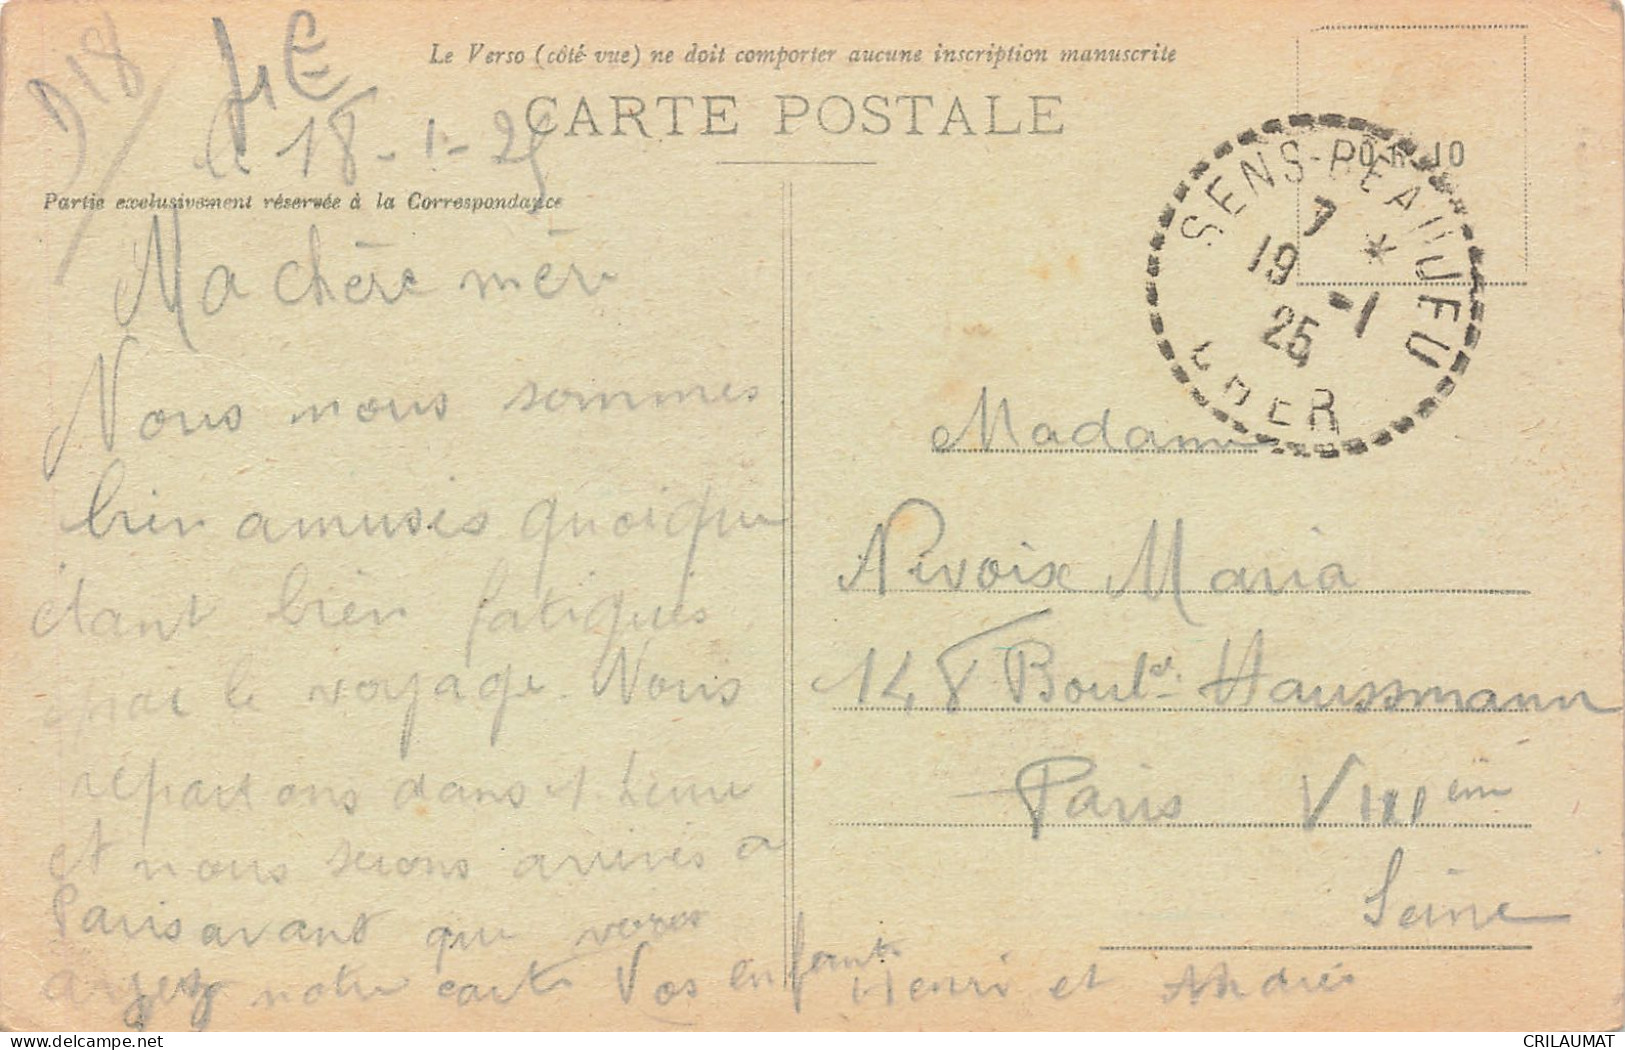 D18
4E
Le Verso (côté vue) ne doit comporter aucune inscription manuscrite
CARTE POSTALE
le 18-1-25
Partie exclusivement réservée à la Correspondance
Ma chère mère
Nous nous sommes
bien amusés quoique
étant bien fatigués
par le voyage. Nous
repartons dans 1 heure
et nous serons arrivés à
Paris avant que vous
ayez notre carte Vos enfants Henri et Andrée
SENS-BEAUJEU
7 *
19 -1
25
CHER
Madame
Nivoix Maria
148 Bould. Haussmann
Paris VIIIème
Seine
CRILAUMAT